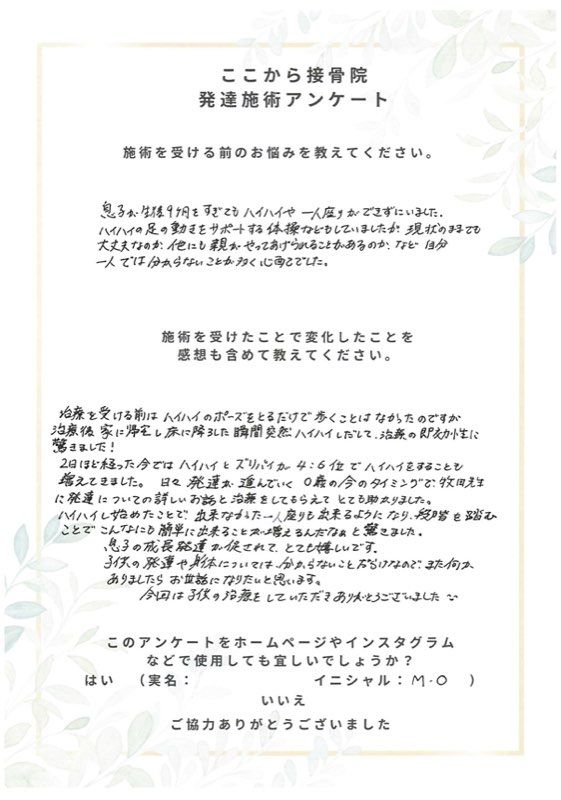 ここから接骨院
発達施術アンケート
施術を受ける前のお悩みを教えてください。
息子が生後9ヶ月をすぎてもハイハイや一人座りができずにいました。
ハイハイの足の動きをサポートする体操などもしていましたが、現状のままでも
大丈夫なのか、他にも親がやってあげられることがあるのか、など自分
一人では分からないことが多く心配でした。
施術を受けたことで変化したことを
感想も含めて教えてください。
治療を受ける前はハイハイのポーズをとるだけで歩くことはなかったのですが
治療後、家に帰宅し床に降ろした瞬間突然ハイハイしだして、治療の即効性に
驚きました!
2日ほど経った今ではハイハイとズリバイが4:6位でハイハイをすることも
増えてきました。日々発達が進んでいく0歳の今のタイミングで牧田先生
に発達についての詳しいお話と治療をしてもらえてとても助かりました。
ハイハイし始めたことで、出来なかった一人座りも出来るようになり、段階を踏む
ことでこんなにも簡単に出来ることが増えるんだなぁと驚きました。
息子の成長発達が促されて、とても嬉しいです。
子供の発達や身体については、分からないことだらけなので、また何か
ありましたらお世話になりたいと思います。
今回は子供の治療をしていただきありがとうございました
このアンケートをホームページやインスタグラム
などで使用しても宜しいでしょうか?
はい (実名: イニシャル:M.O )
いいえ
ご協力ありがとうございました